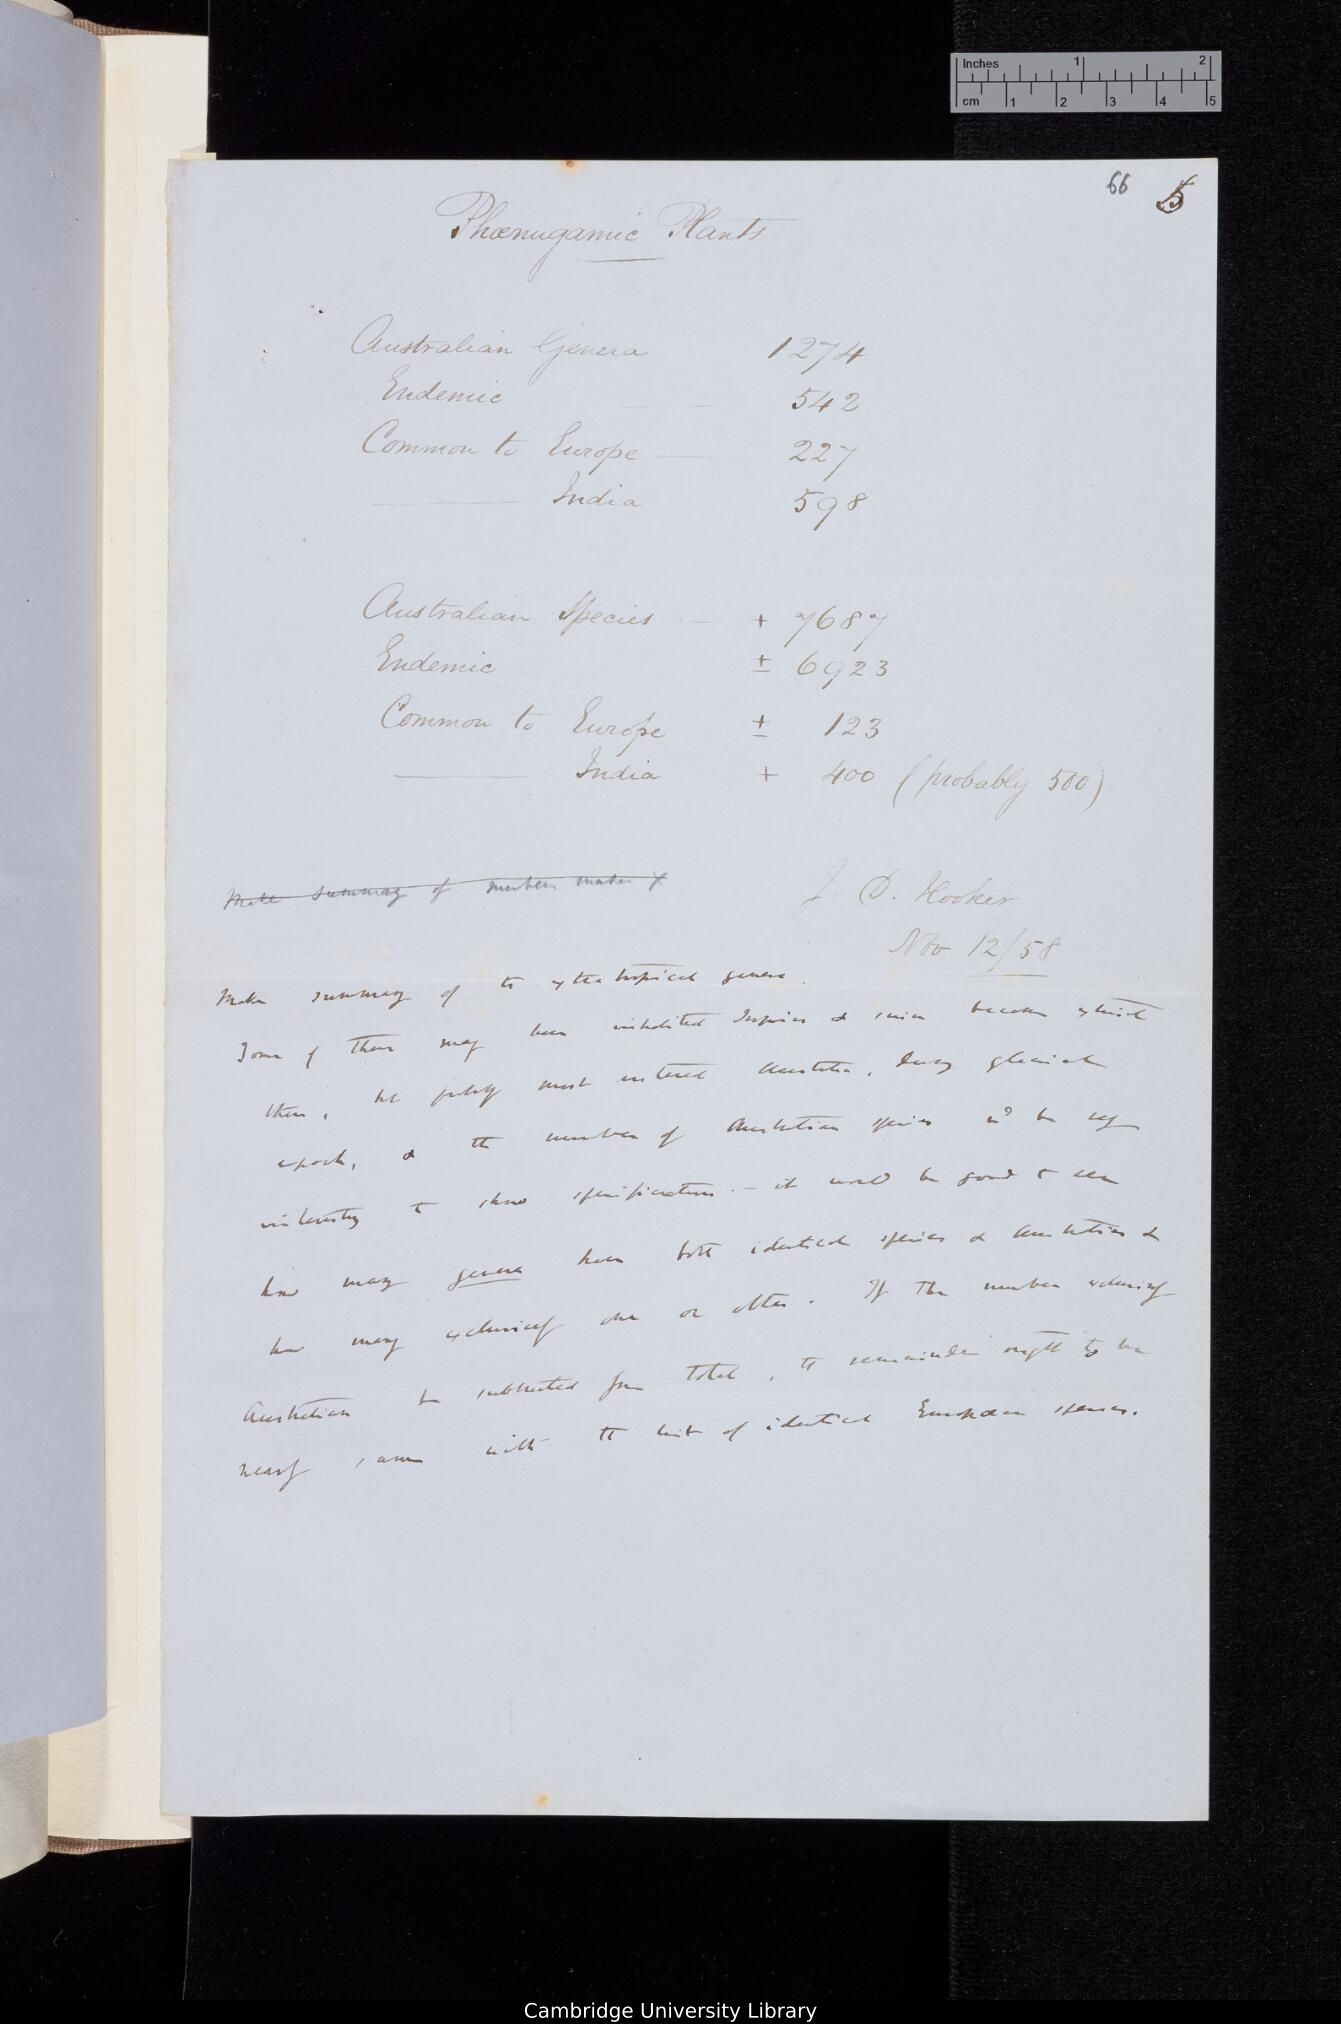 Inches 1 2
cm 1 2 3 4 5
66 5
Phænogamic Plants
Australian Genera 1274
Endemic — — 542
Common to Europe — 227
——— India 598
Australian Species — + 7687
Endemic — ± 6923
Common to Europe ± 123
——— India + 400 (probably 500)
Make summary of number
J. D. Hooker
Nov 12/58
Make summary of the extra tropical genera.
Some of these may have inhabited Tropics & since become extinct
there, but probably most entered Australia, during glacial
epoch, & the number of Australian species wd be very
interesting to show specification. — it would be good to see
how many genera have both identical species & Australian &
how many exclusively one or other. If the number exclusively
Australian be subtracted from total, the remainder ought to be
nearly same with the list of identical European species.
Cambridge University Library